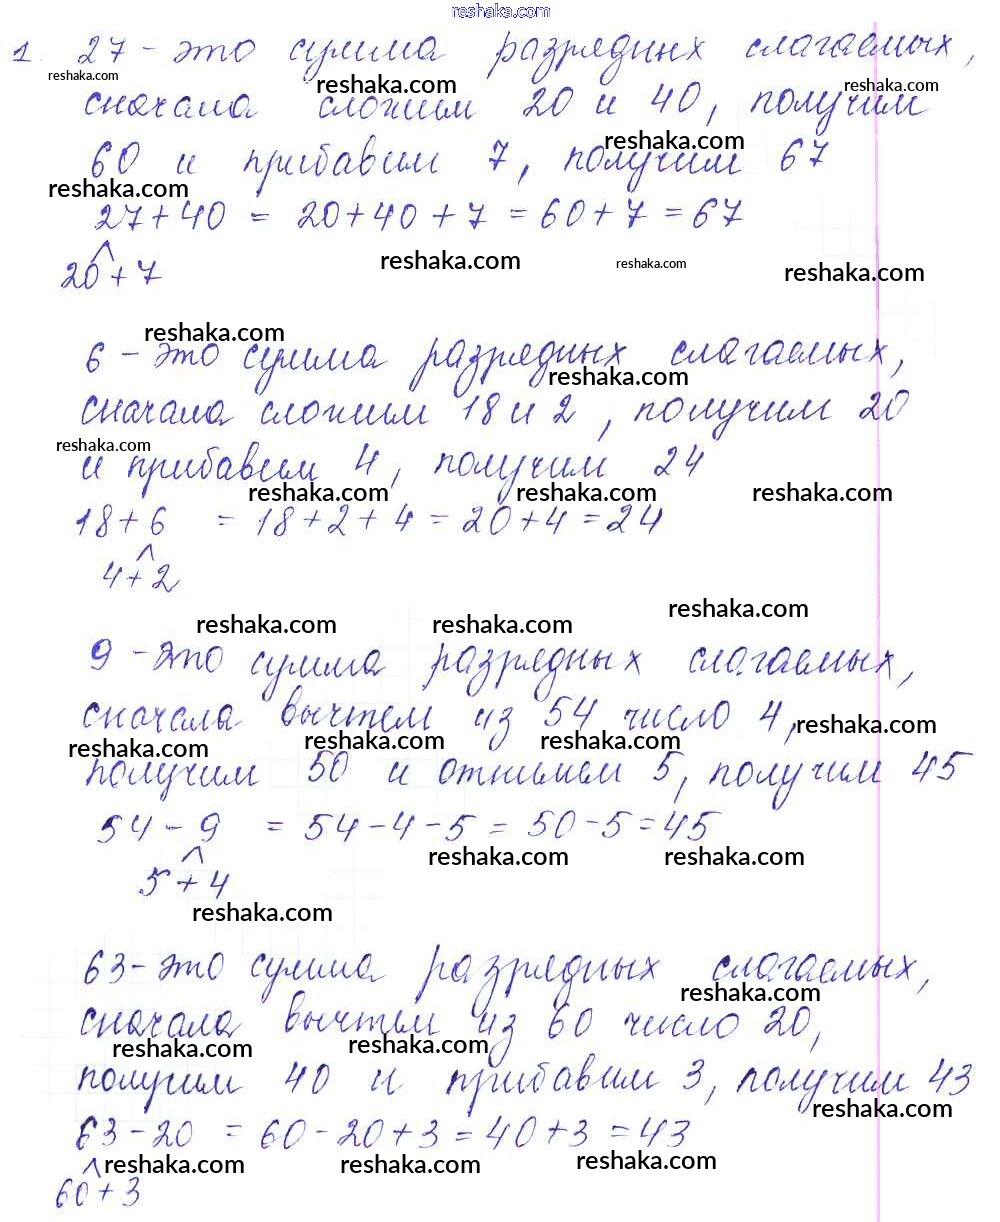 reshaka.com
1. 27 - это сумма разрядных слагаемых,
reshaka.com reshaka.com reshaka.com
сначала сложим 20 и 40, получим
reshaka.com
60 и прибавим 7, получим 67
reshaka.com
27+40 = 20+40+7=60+7=67
reshaka.com reshaka.com reshaka.com
20+7
reshaka.com
6 - это сумма разрядных слагаемых,
reshaka.com
сначала сложим 18 и 2, получим 20
reshaka.com
и прибавим 4, получим 24
reshaka.com reshaka.com reshaka.com
18+6 = 18+2+4=20+4=24
4+2
reshaka.com reshaka.com reshaka.com
9 - это сумма разрядных слагаемых,
сначала вычтем из 54 число 4,
reshaka.com reshaka.com reshaka.com reshaka.com
получим 50 и отнимем 5, получим 45
54-9 = 54-4-5=50-5=45
reshaka.com reshaka.com
5+4
reshaka.com
63- это сумма разрядных слагаемых,
reshaka.com
сначала вычтем из 60 число 20,
reshaka.com reshaka.com
получим 40 и прибавим 3, получим 43
reshaka.com
63-20 = 60-20+3=40+3=43
reshaka.com reshaka.com reshaka.com
60+3